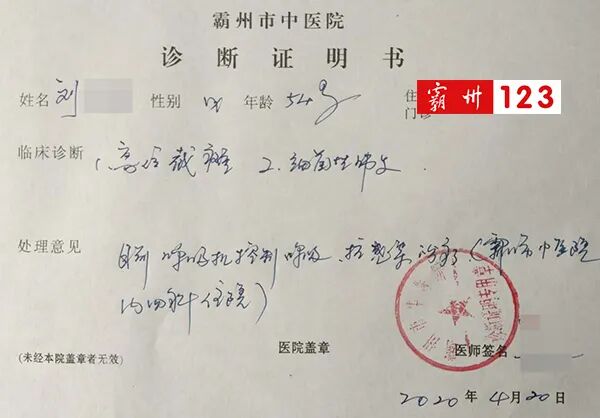 霸州市中医院
诊断证明书
姓名 刘 性别 年龄 54岁 住 门诊
霸州123
临床诊断 1.高位截瘫 2.细菌性肺炎
处理意见 目前呼吸机控制呼吸、抗感染治疗(霸州市中医院
内四科住院)
医院盖章 医师签名
(未经本院盖章者无效)
2020年4月20日